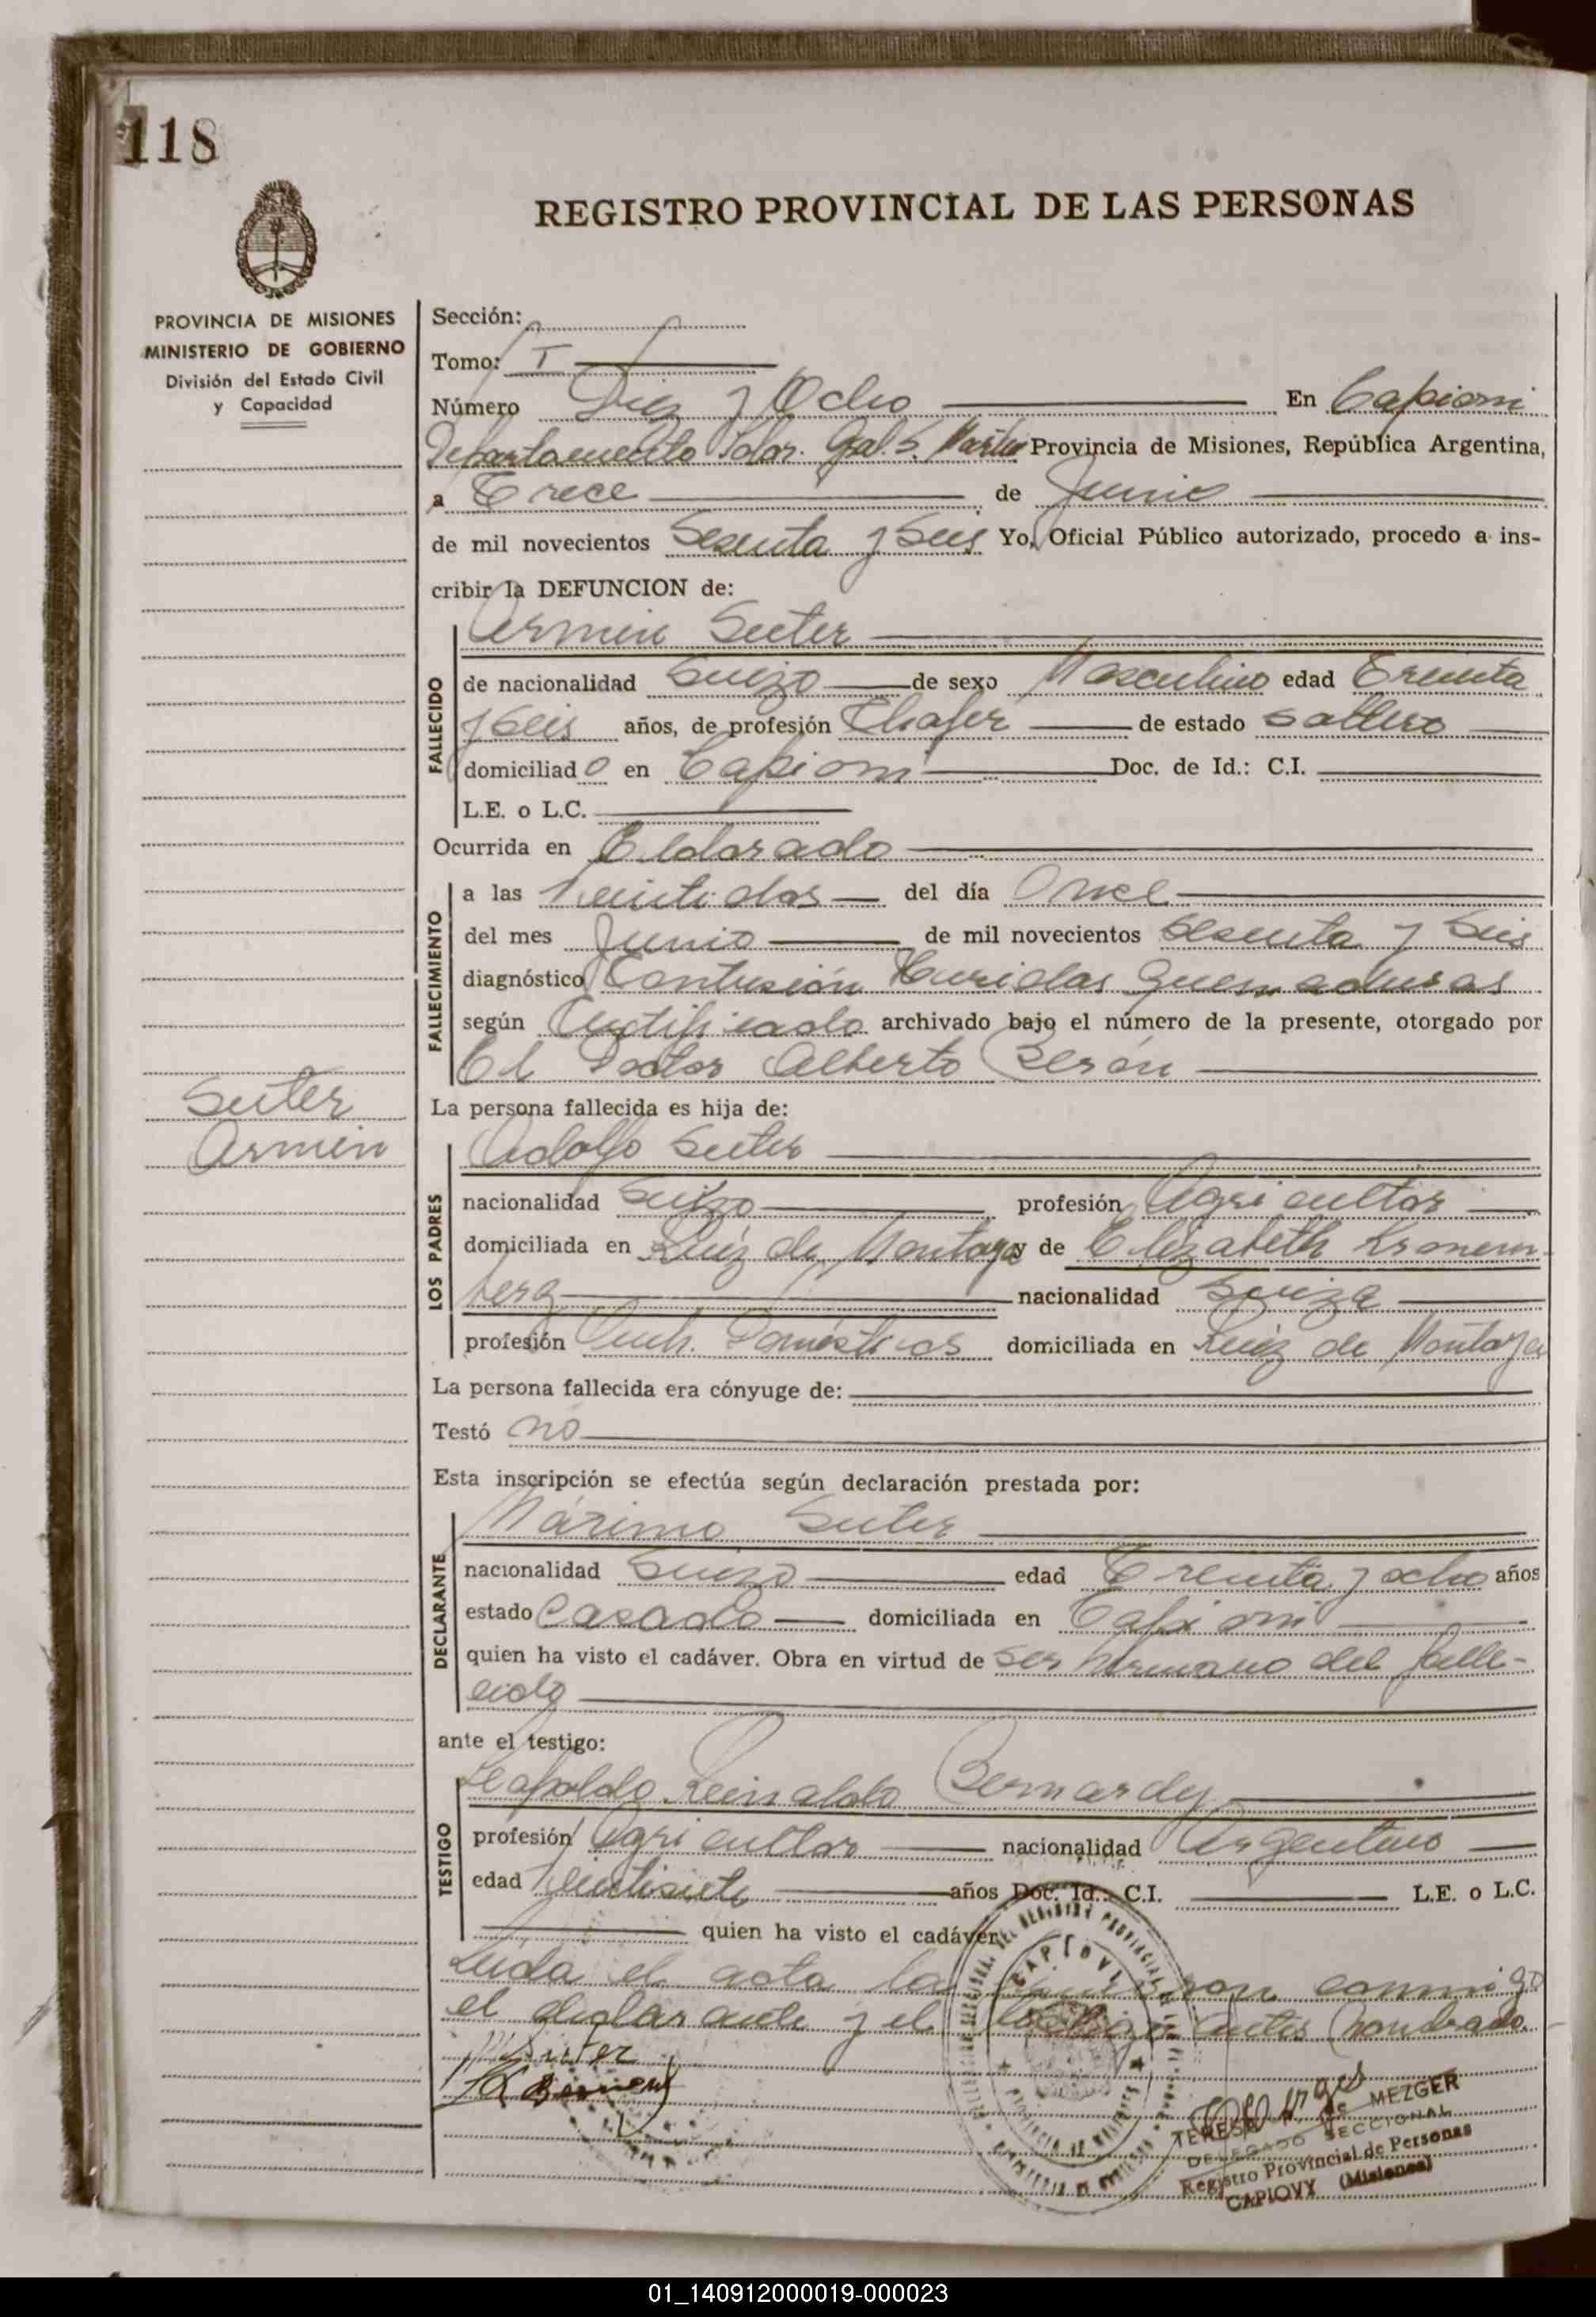 118
REGISTRO PROVINCIAL DE LAS PERSONAS
PROVINCIA DE MISIONES
MINISTERIO DE GOBIERNO
División del Estado Civil
y Capacidad
Sección:
Tomo: I
Número Diez y Ocho En Capiovi
Departamento Ldor. Gral. S. Martin Provincia de Misiones, República Argentina,
a Trece de Junio
de mil novecientos Sesenta y Seis Yo, Oficial Público autorizado, procedo a ins-
cribir la DEFUNCION de:
Armin Suter
FALLECIDO
de nacionalidad Suizo de sexo Masculino edad Treinta
y Seis años, de profesión Chofer de estado Soltero
domiciliado en Capiovi Doc. de Id.: C.I.
L.E. o L.C.
Ocurrida en Eldorado
FALLECIMIENTO
a las Veintidos del día Once
del mes Junio de mil novecientos Sesenta y Seis
diagnóstico Contusión Heridas Quemaduras
según Certificado archivado bajo el número de la presente, otorgado por
El Doctor Alberto Berón
Suter
Armin
La persona fallecida es hija de:
Adolfo Suter
LOS PADRES
nacionalidad Suizo profesión Agricultor
domiciliada en Ruiz de Montoya y de Elizabeth Kronem-
berg nacionalidad Suiza
profesión Queh. Domésticos domiciliada en Ruiz de Montoya
La persona fallecida era cónyuge de:
Testó no
Esta inscripción se efectúa según declaración prestada por:
Máximo Suter
DECLARANTE
nacionalidad Suizo edad Treinta y ocho años
estado Casado domiciliada en Capiovi
quien ha visto el cadáver. Obra en virtud de ser hermano del falle-
cido
ante el testigo:
Leopoldo Reinaldo Bernardy
TESTIGO
profesión Agricultor nacionalidad Argentino
edad Veintisiete años Doc. Id.: C.I. L.E. o L.C.
quien ha visto el cadáver.
Leida el acta la conmigo
el declarante y el testigo antes nombrado.
Suter
CAPIOVY
TERESA de MEZGER
DELEGADO SECCIONAL
Registro Provincial de Personas
CAPIOVY (Misiones)
01_140912000019-000023